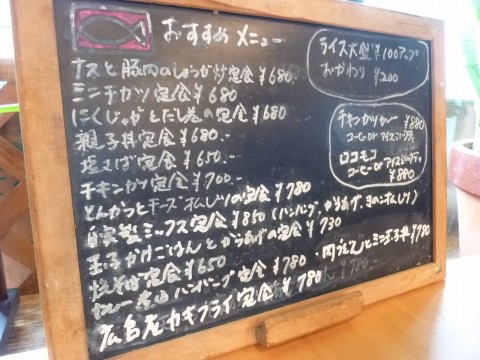 おすすめメニュー
ナスと豚肉のしょうが炒定食 ¥680.-
ミニチカツ定食 ¥680
にくじゃがとだし巻の定食 ¥680
親子丼定食 ¥680.-
塩さば定食 ¥650.-
チキンカツ定食 ¥700.-
とんかつとチーズオムレツの定食 ¥780
自家製ミックス定食 ¥850 (ハンバーグ、からあげ、きのこオムレツ)
玉子かけごはんとからあげの定食 ¥730
焼そば定食 ¥650
カレー ハンバーグ定食 ¥780.
肉玉子丼 ¥780
広島産カキフライ定食 ¥780
ライス大盛 ¥100アップ
おかわり ¥200
チキンカツカレー ¥880
コーヒー or アイスミルクティ
ロコモコ
コーヒー or アイスミルクティ
¥880